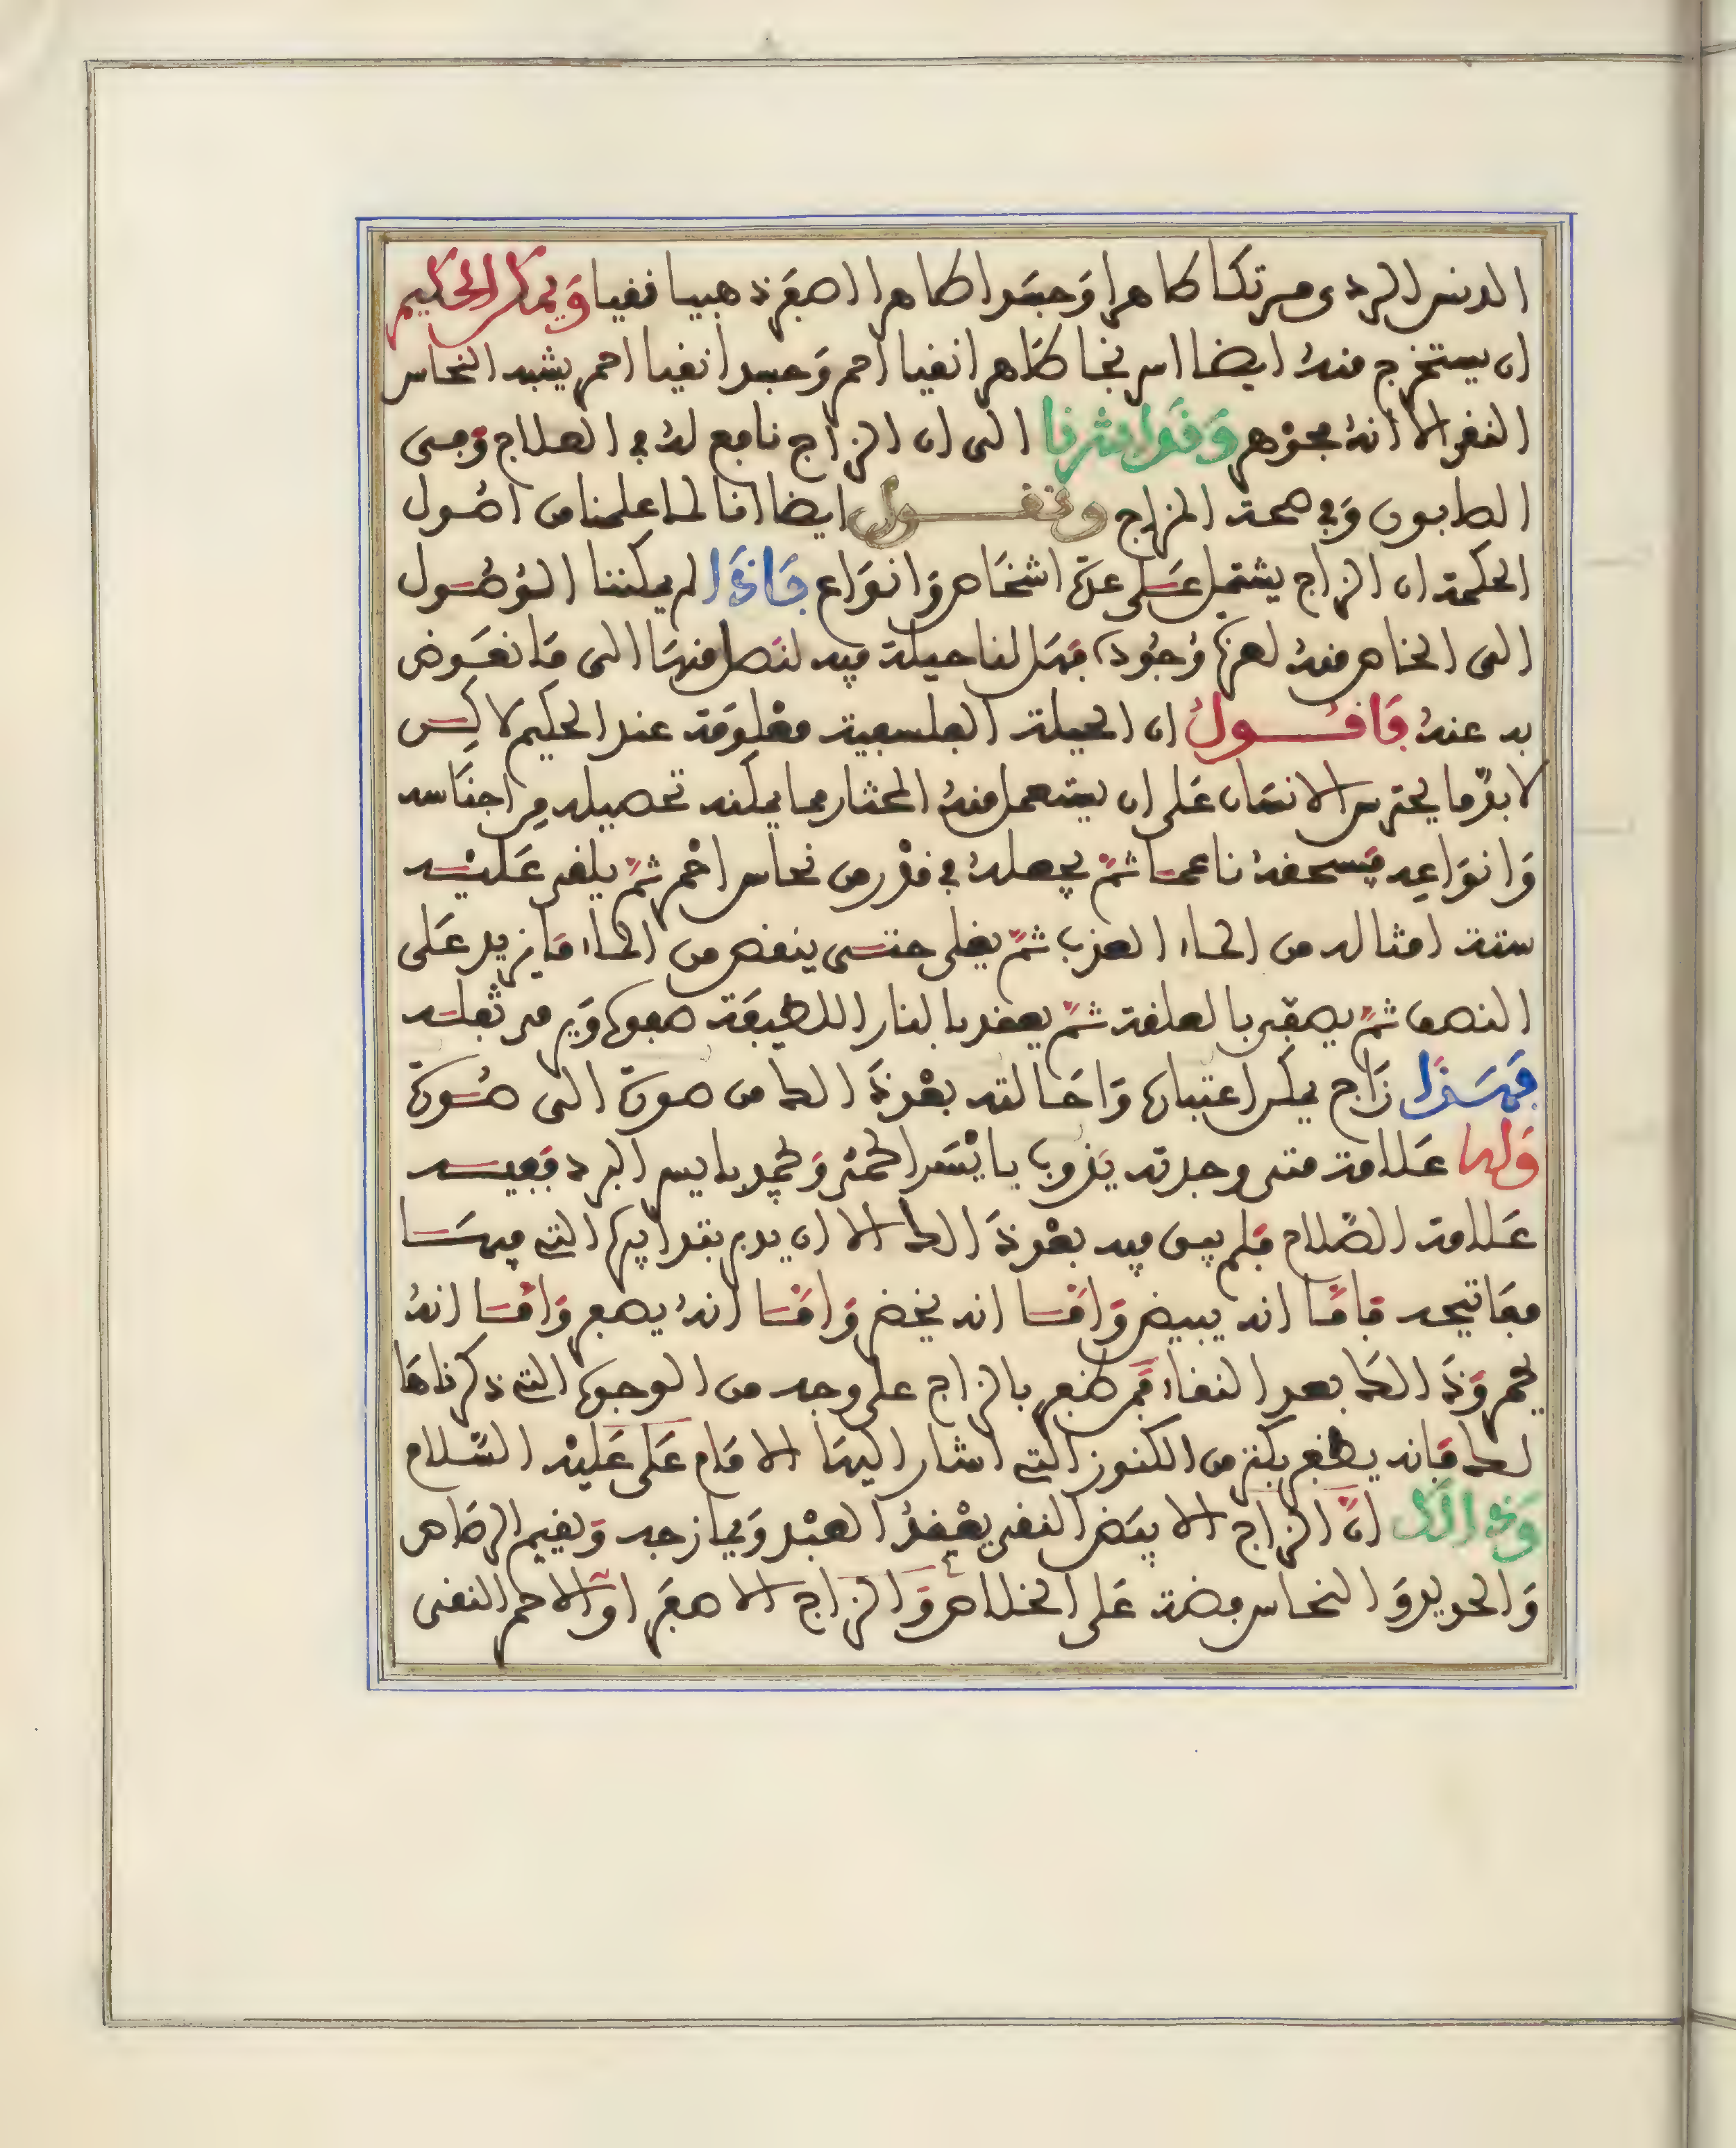 الدنس الردي مرتكا طاهرا وجسدا طاهرا اصفر ذهبيا نقيا ويمكن الحكيم
ان يستخرج منه ايضا اسرنجا طاهرا نقيا احمر وجسدا نقيا احمر يشبه النحاس
النقي الا انه مجوهر وقد اشرنا الى ان الزاج نافع له في العلاج وفي
الطاعون وفي صحة المزاج ونقول ايضا انا لما علمنا من اصول
الحكمة ان الزاج يشتمل على عدة اشخاص وانواع فاذا لم يمكننا الوصول
الى الخاص منه لعزة وجوده فهل لنا حيلة فيه لنصل منها الى ما نعوض
به عنه فاقول ان الحيلة الفلسفية معلومة عند الحكيم لاكن
لا بد ما يحترس الانسان على ان يستعمل منه المختار مما يمكنه تحصيله من اجناسه
وانواعه فيسحقه ناعما ثم يجعله في قدر من نحاس احمر ثم يلقي عليه
ستة امثاله من الماء العذب ثم يغلى حتى ينقص من الماء ما يزيد على
النصف ثم يصفى بالعلقة ثم يعقد بالنار اللطيفة صفوه ويرمى ثفله
فهذا زاج يمكن اعتباره واحالته بقدرة الله من صورة الى صورة
وله علامة متى وجدته يذوب بايسر الحمى ويجمد بايسر البرد ففيه
علامة الصلاح فلم يبق فيه بقدرة الله الا ان يدبر بتدابيره التي فيها
مفاتيحه فاما انه يبيض واما انه يخضر واما انه يصفر واما انه
يحمر وذالك بعد النقاء فمن ظفر بالزاج على وجه من الوجوه التي ذكرناها
لك فانه يظفر بكنز من الكنوز التي اشار اليها الامام علي عليه السلام
وذالك ان الزاج الابيض النقي يعقد العبد ويمازجه ويقيم الرصاص
والحديد والنحاس فضة على الخلاص والزاج الاصفر او الاحمر النقي